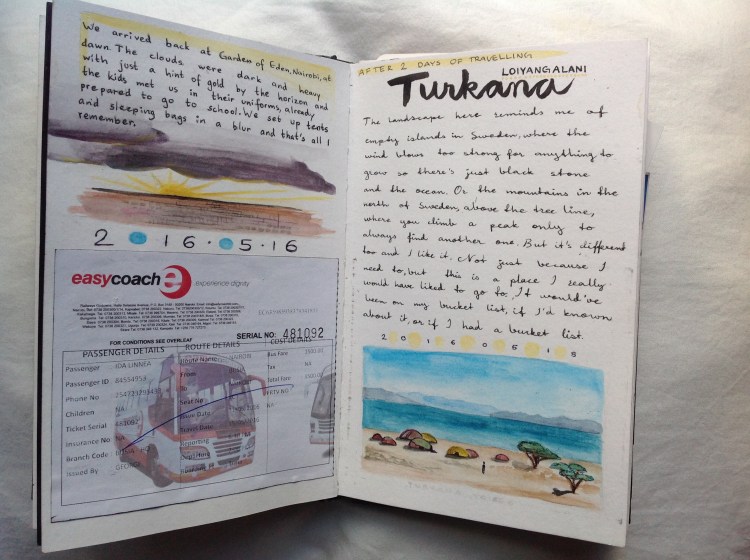 We arrived back at Garden of Eden, Nairobi, at
dawn. The clouds were dark and heavy
with just a hint of gold by the horizon and
the kids met us in their uniforms, already
prepared to go to school. We set up tents
and sleeping bags in a blur and that's all I
remember.
2016.05.16
easycoach e experience dignity
SERIAL NO: 481092
FOR CONDITIONS SEE OVERLEAF
PASSENGER DETAILS ROUTE DETAILS COST DETAILS
Passenger IDA LINNEA Route Name NAIROBI Bus Fare
Passenger ID 84554953 From Tax NA
Phone No To Total Fare
Children NA Seat No
Ticket Serial 481092 Issue Date
Insurance No Travel Date
Branch Code Reporting
Issued By GEORGE Departure
AFTER 2 DAYS OF TRAVELLING
LOIYANGALANI
Turkana
The landscape here reminds me of
empty islands in Sweden, where the
wind blows too strong for anything to
grow so there's just black stone
and the ocean. Or the mountains in the
north of Sweden, above the tree line,
where you climb a peak only to
always find another one. But it's different
too and I like it. Not just because I
need to, but this is a place I really
would have liked to go to. It would've
been on my bucket list, if I'd known
about it, or if I had a bucket list.
20160515